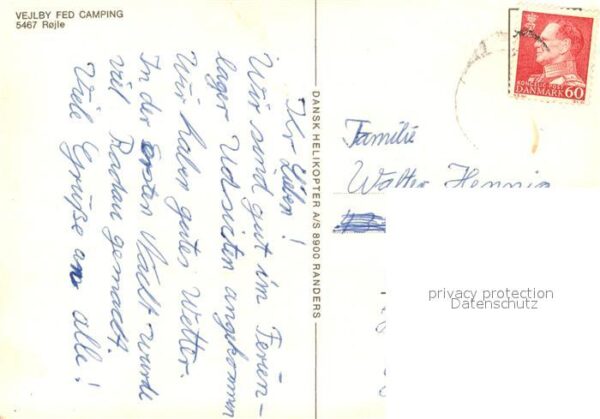 VEJLBY FED CAMPING
5467 Røjle
Ihr Lieben!
Wir sind gut im Ferien-
lager Udsigten angekommen
Wir haben gutes Wetter.
In der ersten Nacht wurde
viel Radau gemacht.
Viele Grüße an alle!
DANSK HELIKOPTER A/S 8900 RANDERS
KONGELIG POST
DANMARK 60
Familie
Walter Hennig
privacy protection
Datenschutz